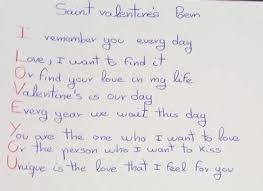 Saint valentine's Poem
I remember you every day
Love, I want to find it
Or find your love in my life
Valentine's is our day
Every year we wait this day
You are the one who I want to love
Or the person who I want to kiss
Unique is the love that I feel for you